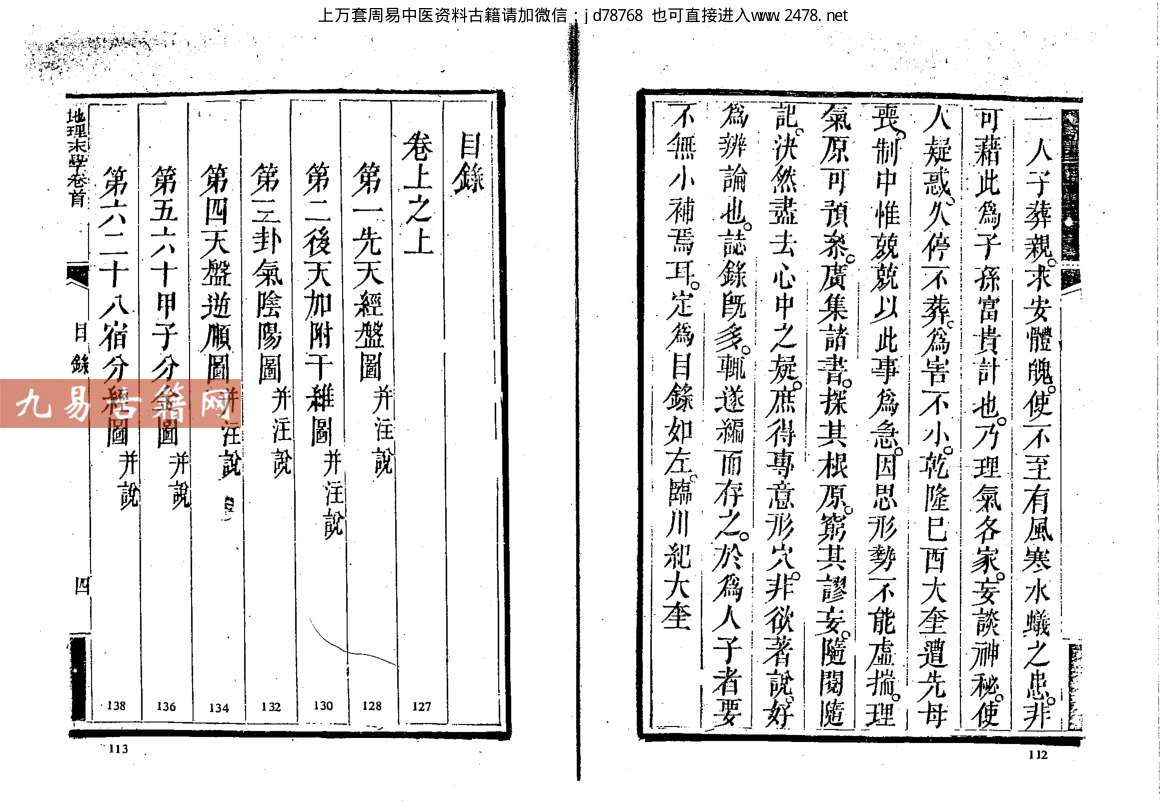 上万套周易中医资料古籍请加微信：jd78768 也可直接进入www.2478.net
一人子葬親。求安體魄。使不至有風寒水蟻之患。非
可藉此爲子孫富貴計也。乃理氣各家。妄談神秘。使
人疑惑。久停不葬。爲害不小。乾隆巳酉大奎遭先母
喪。制中惟兢兢以此事爲急。因思形勢不能虛揣。理
氣原可預叅。廣集諸書。探其根原。窮其謬妄。隨閱隨
記。決然盡去心中之疑。庶得專意形穴。非欲著說。好
爲辨論也。誌錄旣多。輒遂編而存之。於爲人子者要
不無小補焉耳。定爲目錄如左。臨川紀大奎
112
目錄
卷上之上
127
第一先天經盤圖 并注說
128
第二後天加附干維圖 并注說
130
第三卦氣陰陽圖 并注說
132
第四天盤逆順圖 并注說
134
第五六十甲子分金圖 并說
136
第六二十八宿分經圖 并說
138
地理末學卷首
目錄
四
113
九易古籍网